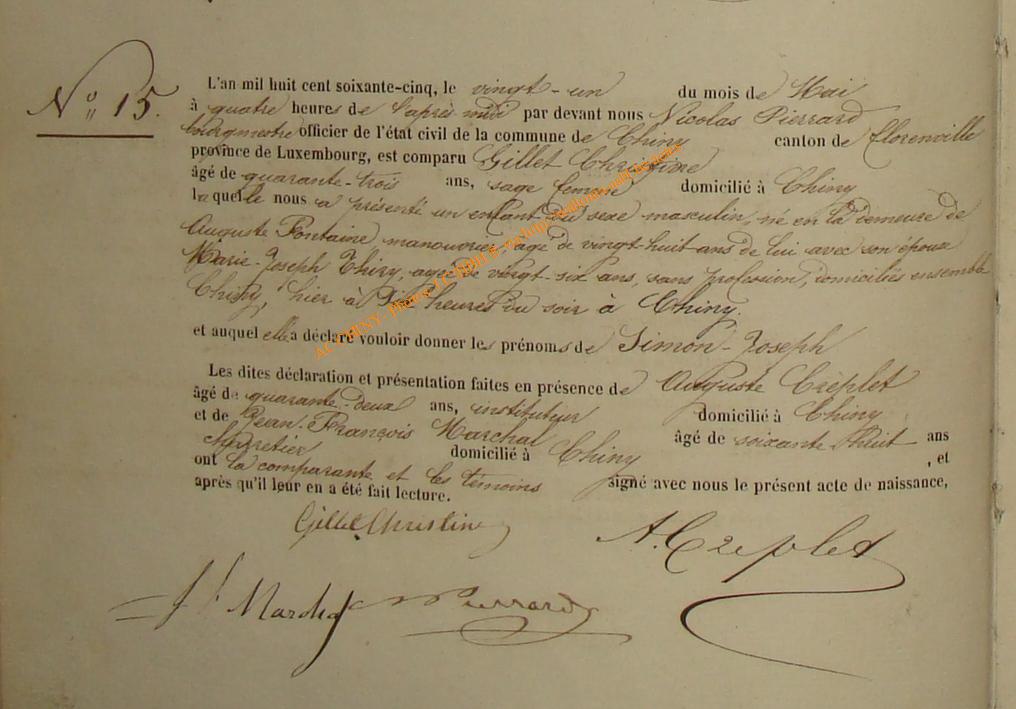 N° 15.
L'an mil huit cent soixante-cinq, le vingt-un du mois de Mai
à quatre heures de l'après midi par devant nous Nicolas Pierrard
bourgmestre officier de l'état civil de la commune de Chiny canton de Florenville
province de Luxembourg, est comparu Gillet Christine
âgé de quarante-trois ans, sage femme domicilié à Chiny
laquelle nous a présenté un enfant du sexe masculin, né en la demeure de
Auguste Fontaine, manouvrier, agé de vingt-huit ans de lui avec son épouse
Marie-Joseph Thiry, agée de vingt-six ans, sans profession, domiciliés ensemble
Chiny, hier à heures du soir à Chiny.
et auquel elle a déclaré vouloir donner les prénoms de Simon-Joseph
Les dites déclaration et présentation faites en présence de Auguste Créplet
âgé de quarante-deux ans, instituteur domicilié à Chiny
et de Jean-François Marchal âgé de soixante-huit ans
charretier domicilié à Chiny , et
ont la comparante et les témoins signé avec nous le présent acte de naissance,
après qu'il leur en a été fait lecture.
Gillet Christine
A. Creplet
Marchal
Pierrard